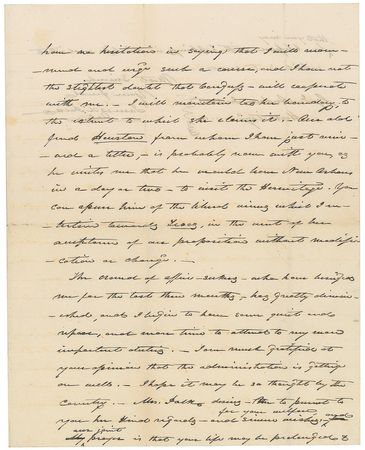 have no hesitation in saying that I will recom-
-mend and urge such a course, and I have not
the slightest doubt that Congress - will cooperate
with me. - I will maintain too her boundary, to
the extent to which she claims it. - Our old
friend Houston, from whom I have just receiv-
-ed a letter, - is probably now with you, as
he writes me that he would leave New Orleans
in a day or two - to visit the Hermitage. You
can assure him of the liberal views which I en-
-tertain towards Texas, in the event of her
acceptance of our proposition without modifi-
-cation or change. -
The crowd of office-seekers - who have besieged
me for the last three months, - has greatly dimin-
-ished, and I begin to have some quiet and
repose, and more time to attend to my more
important duties. - I am much gratified at
your opinion that the administration is getting
on well. - I hope it may be so thought by the
Country. - Mrs. Polk desires - me to present to
you her kind regards - and sincere wishes,
for your welfare and
our joint
prayer is that your life may be prolonged &